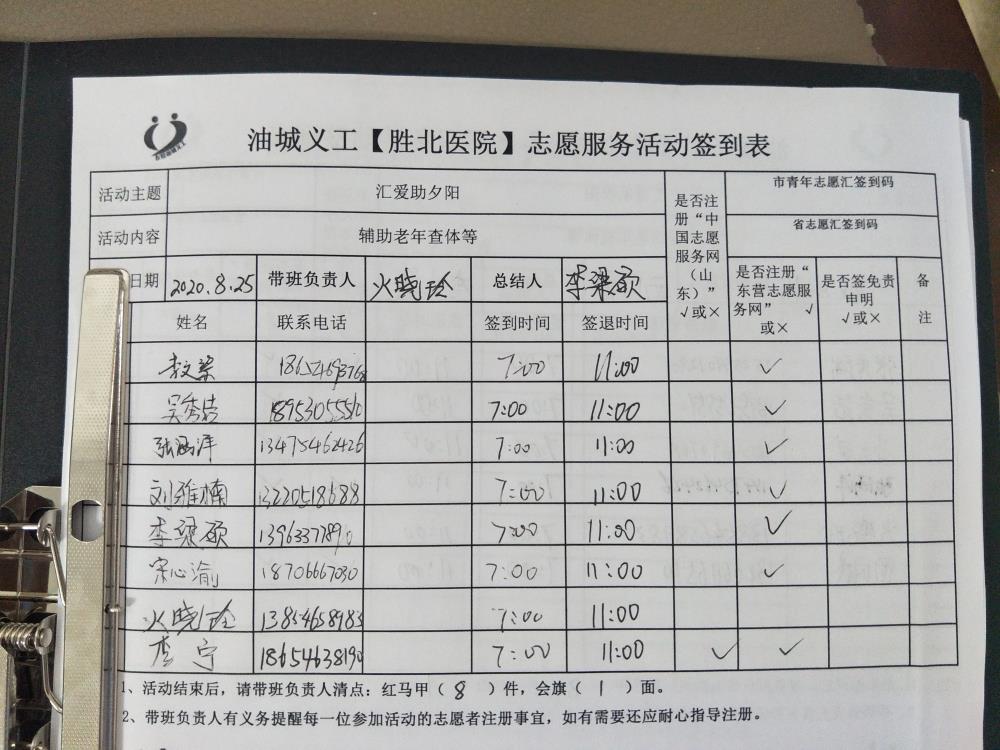 油城义工【胜北医院】志愿服务活动签到表
活动主题 汇爱助夕阳 是否注册“中国志愿服务网（山东）” √或× 市青年志愿汇签到码
活动内容 辅助老年查体等 省志愿汇签到码
日期 2020.8.25 带班负责人 火晓玲 总结人 李梁硕 是否注册“东营志愿服务网” √或× 是否签免责申明 √或× 备注
姓名 联系电话 签到时间 签退时间
7:00 11:00 ✓
吴秀洁 18953055510 7:00 11:00 ✓
张海洋 13475462426 7:00 11:00 ✓
刘雅楠 13220518688 7:00 11:00 ✓
李梁硕 13963377890 7:00 11:00 ✓
宋心渝 18706667030 7:00 11:00 ✓
火晓玲 13854658983 7:00 11:00
李宁 18654638190 7:00 11:00 ✓ ✓
1、活动结束后，请带班负责人清点：红马甲（ 8 ）件，会旗（ 1 ）面。
2、带班负责人有义务提醒每一位参加活动的志愿者注册事宜，如有需要还应耐心指导注册。